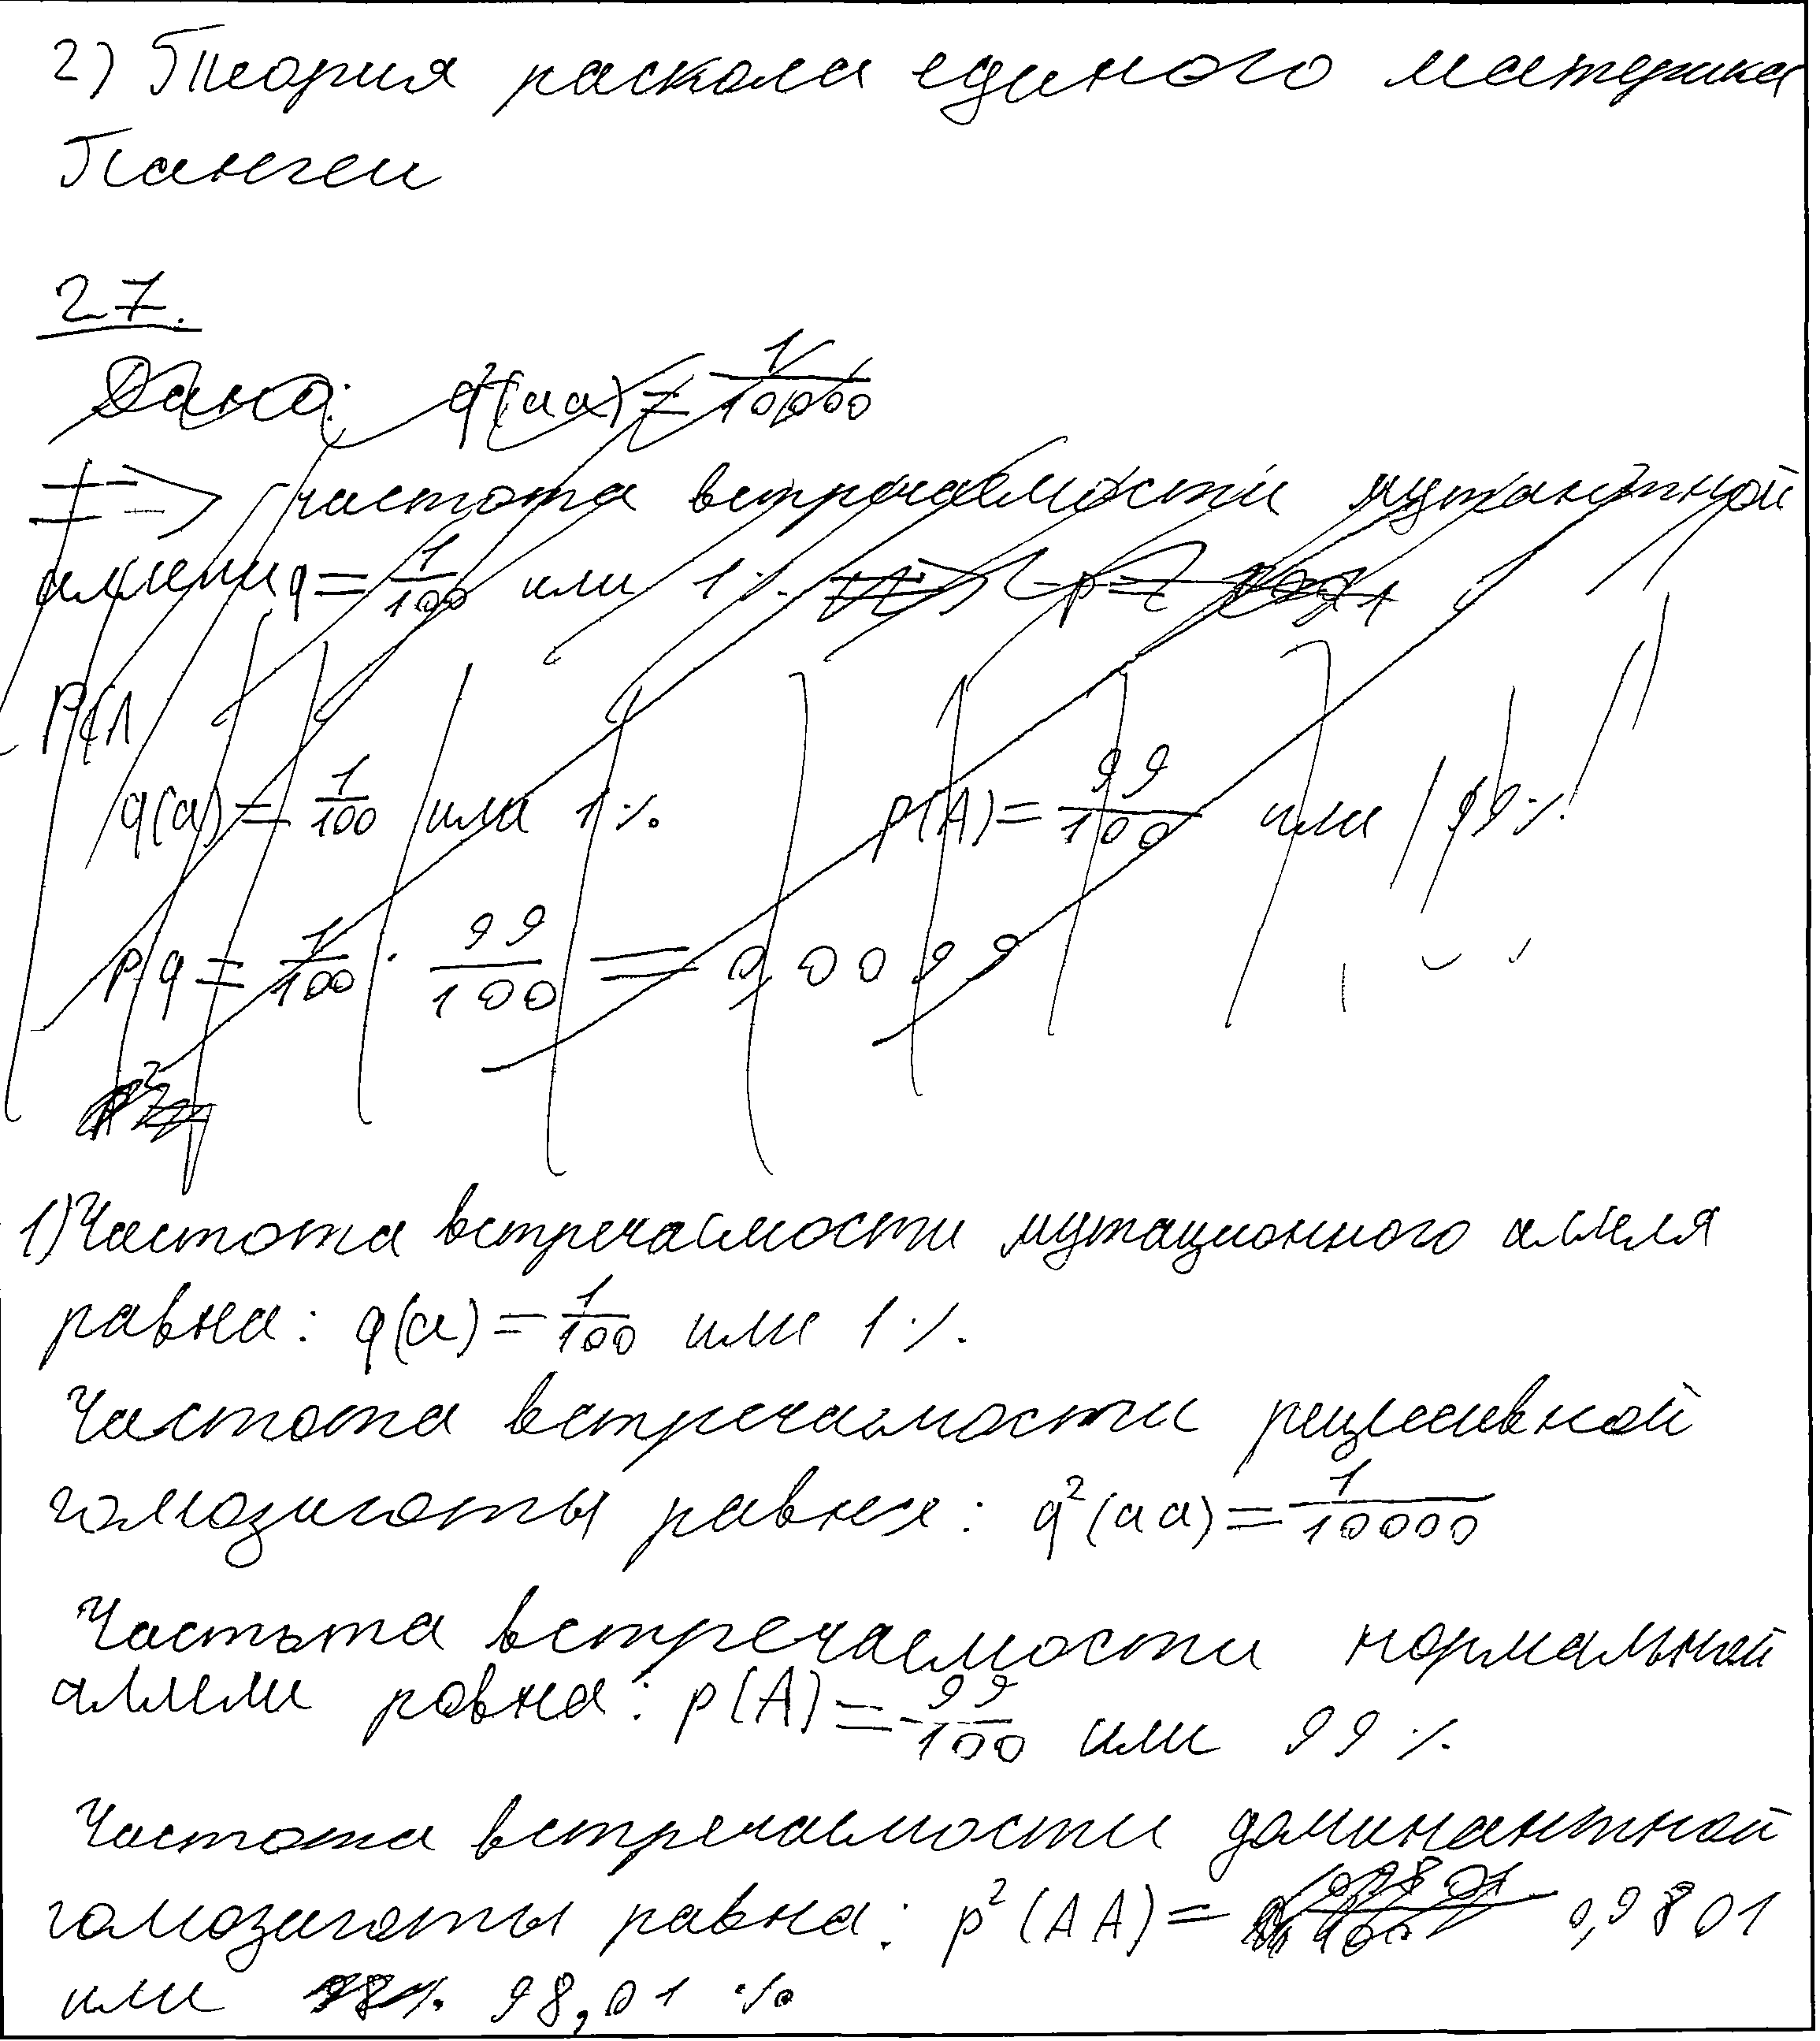 2) Теория раскола единого материка
Пангеи
27.
Дано: q²(aa) = 1/10000
=> частота встречаемости мутантной
аллели q = 1/100 или 1%.
q(a) = 1/100 или 1%. p(A) = 99/100 или 99%.
p q = 1/100 · 99/100 = 0,0099
1) Частота встречаемости мутационного аллеля
равна: q(a) = 1/100 или 1%.
Частота встречаемости рецессивной
гомозиготы равна: q²(aa) = 1/10000
Частота встречаемости нормальной
аллели равна: p(A) = 99/100 или 99%.
Частота встречаемости доминантной
гомозиготы равна: p²(AA) = 0,9801
или 98,01%